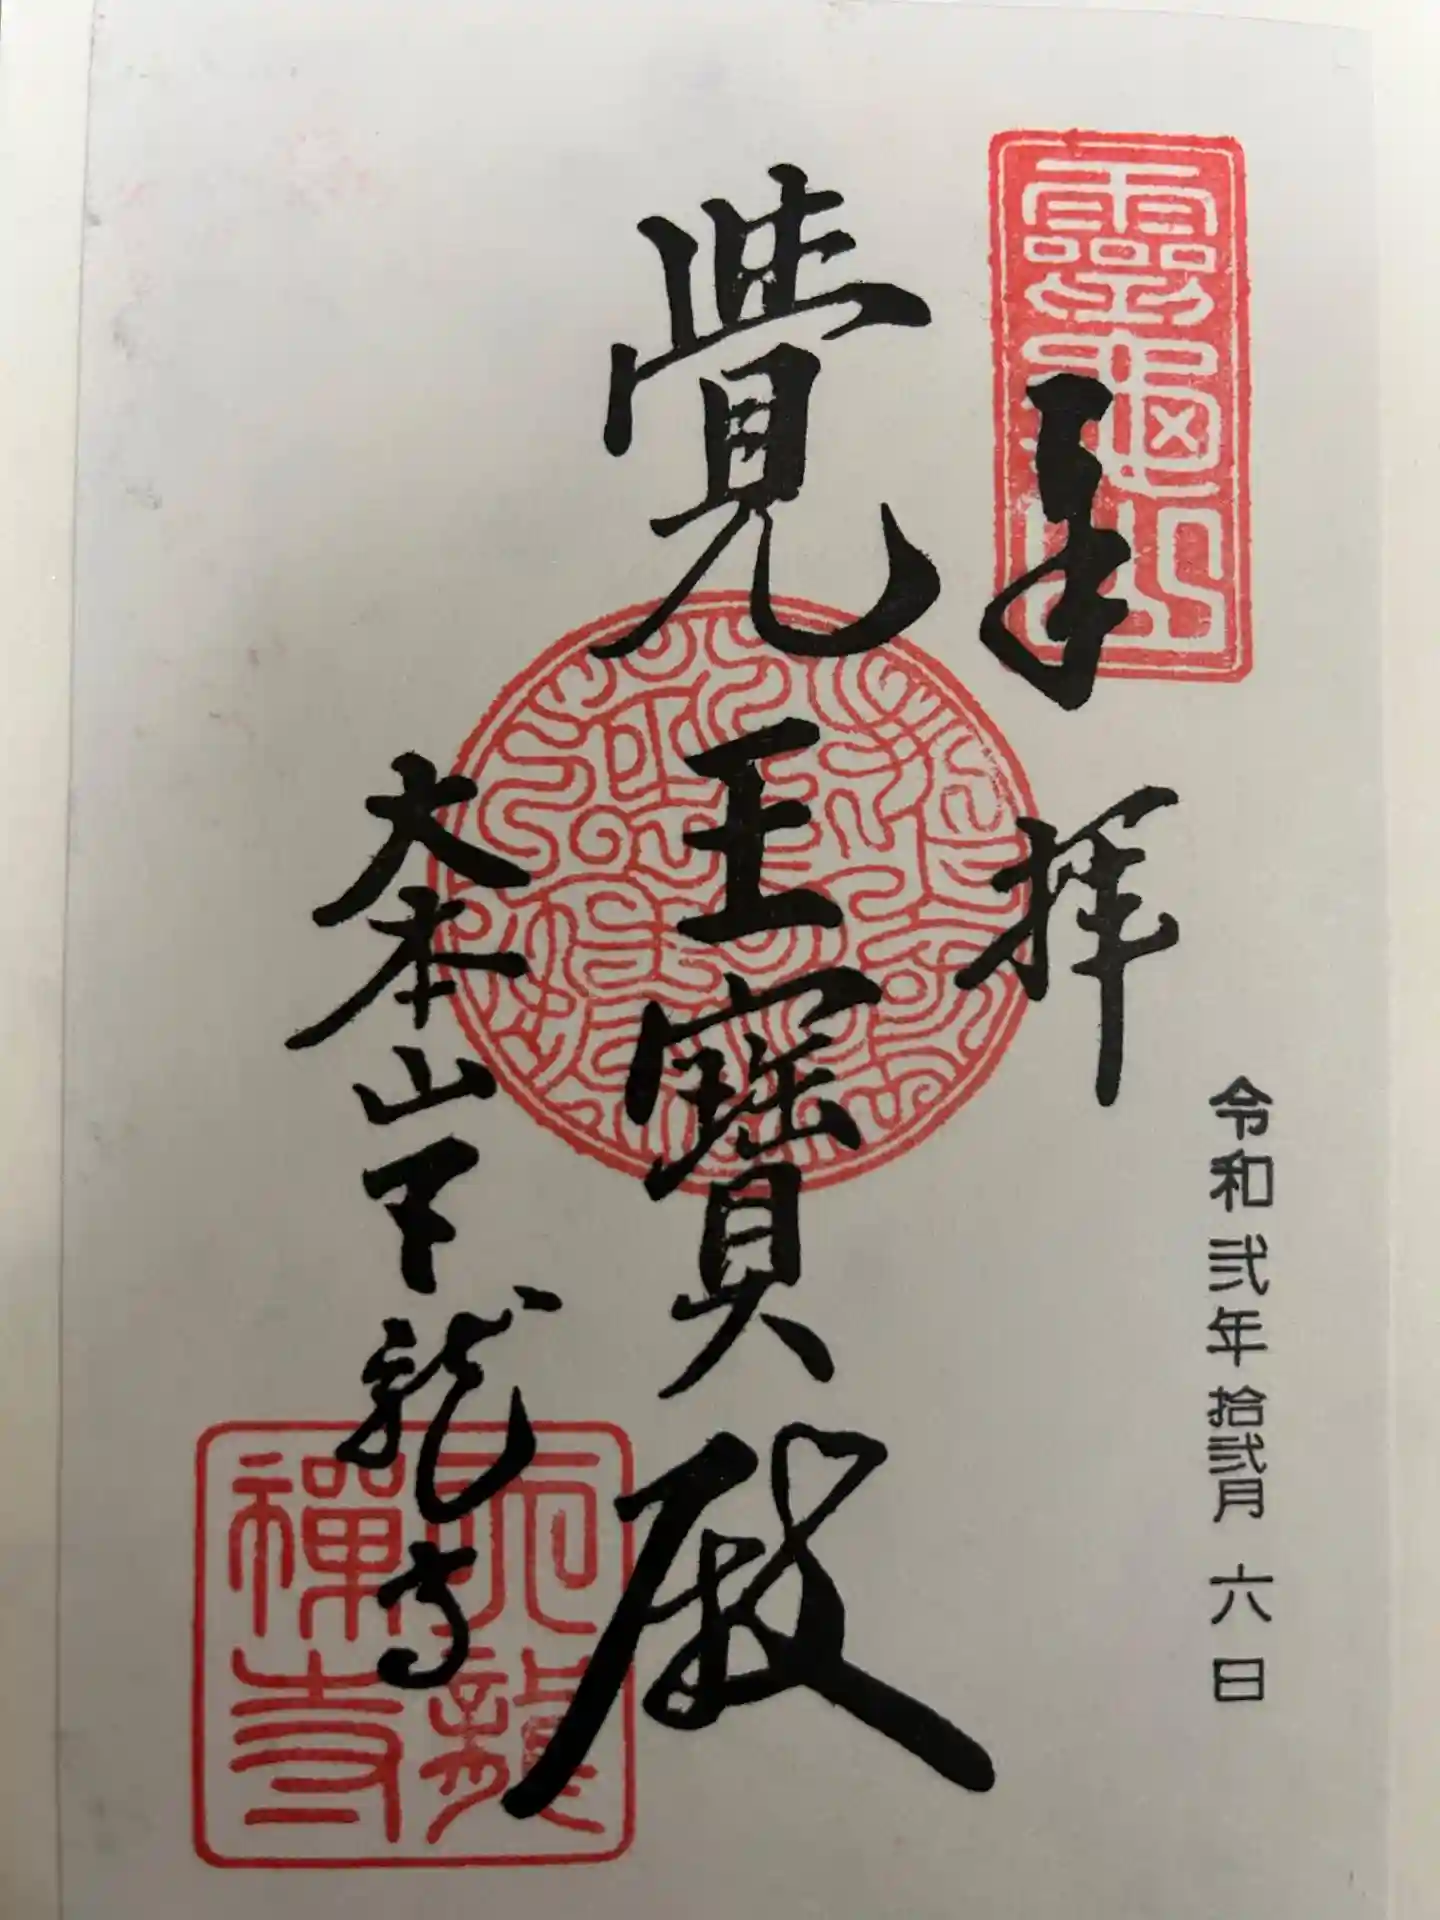 靈龜山
奉拝
令和弐年拾弐月六日
覺王寶殿
大本山天龍寺
天龍禪寺